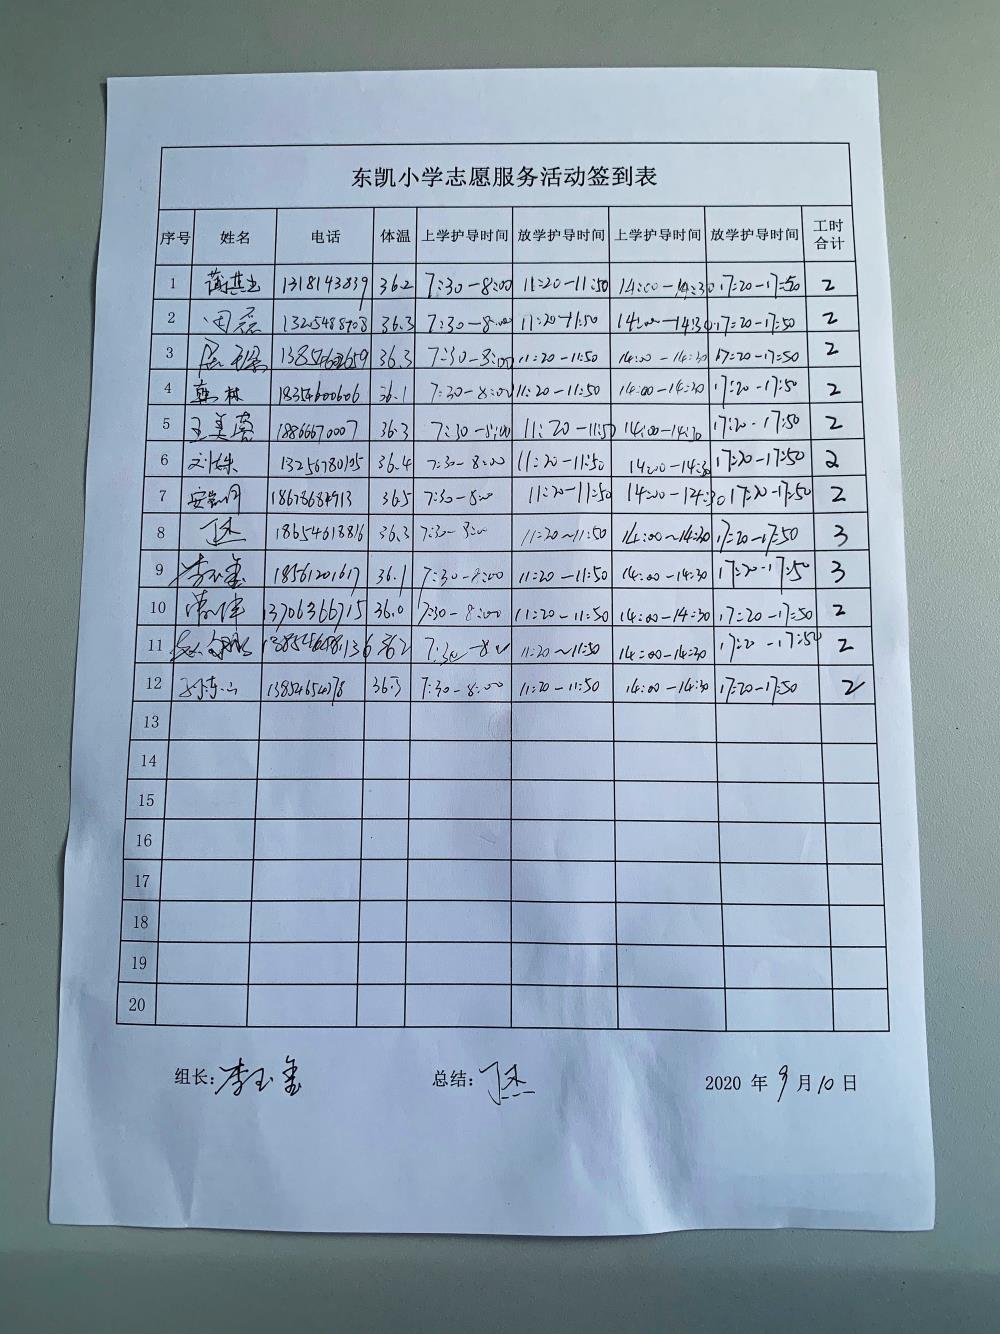 东凯小学志愿服务活动签到表
序号 姓名 电话 体温 上学护导时间 放学护导时间 上学护导时间 放学护导时间 工时合计
1 1318143839 36.2 7:30-8:00 11:20-11:50 14:00-14:30 17:20-17:50 2
2 周磊 36.3 7:30-8:00 11:20-11:50 14:00-14:30 17:20-17:50 2
3 36.3 7:30-8:00 11:20-11:50 14:00-14:30 17:20-17:50 2
4 韩林 18354600606 36.1 7:30-8:00 11:20-11:50 14:00-14:30 17:20-17:50 2
5 王美蓉 18866670007 36.3 7:30-8:00 11:20-11:50 14:00-14:30 17:20-17:50 2
6 刘姝 13256780105 36.4 7:30-8:00 11:20-11:50 14:00-14:30 17:20-17:50 2
7 36.5 7:30-8:00 11:20-11:50 14:00-14:30 17:20-17:50 2
8 丁杰 18654618816 36.3 7:30-8:00 11:20~11:50 14:00~14:30 17:20-17:50 3
9 李玉金 18561201617 36.1 7:30-8:00 11:20-11:50 14:00-14:30 17:20-17:50 3
10 13706366715 36.0 7:30-8:00 11:20-11:50 14:00-14:30 17:20-17:50 2
11 362 11:20~11:50 14:00-14:30 17:20-17:50 2
12 36.3 7:30-8:00 11:20-11:50 14:00-14:30 17:20-17:50 2
13
14
15
16
17
18
19
20
组长: 李玉金 总结: 丁杰 2020 年 9 月 10 日